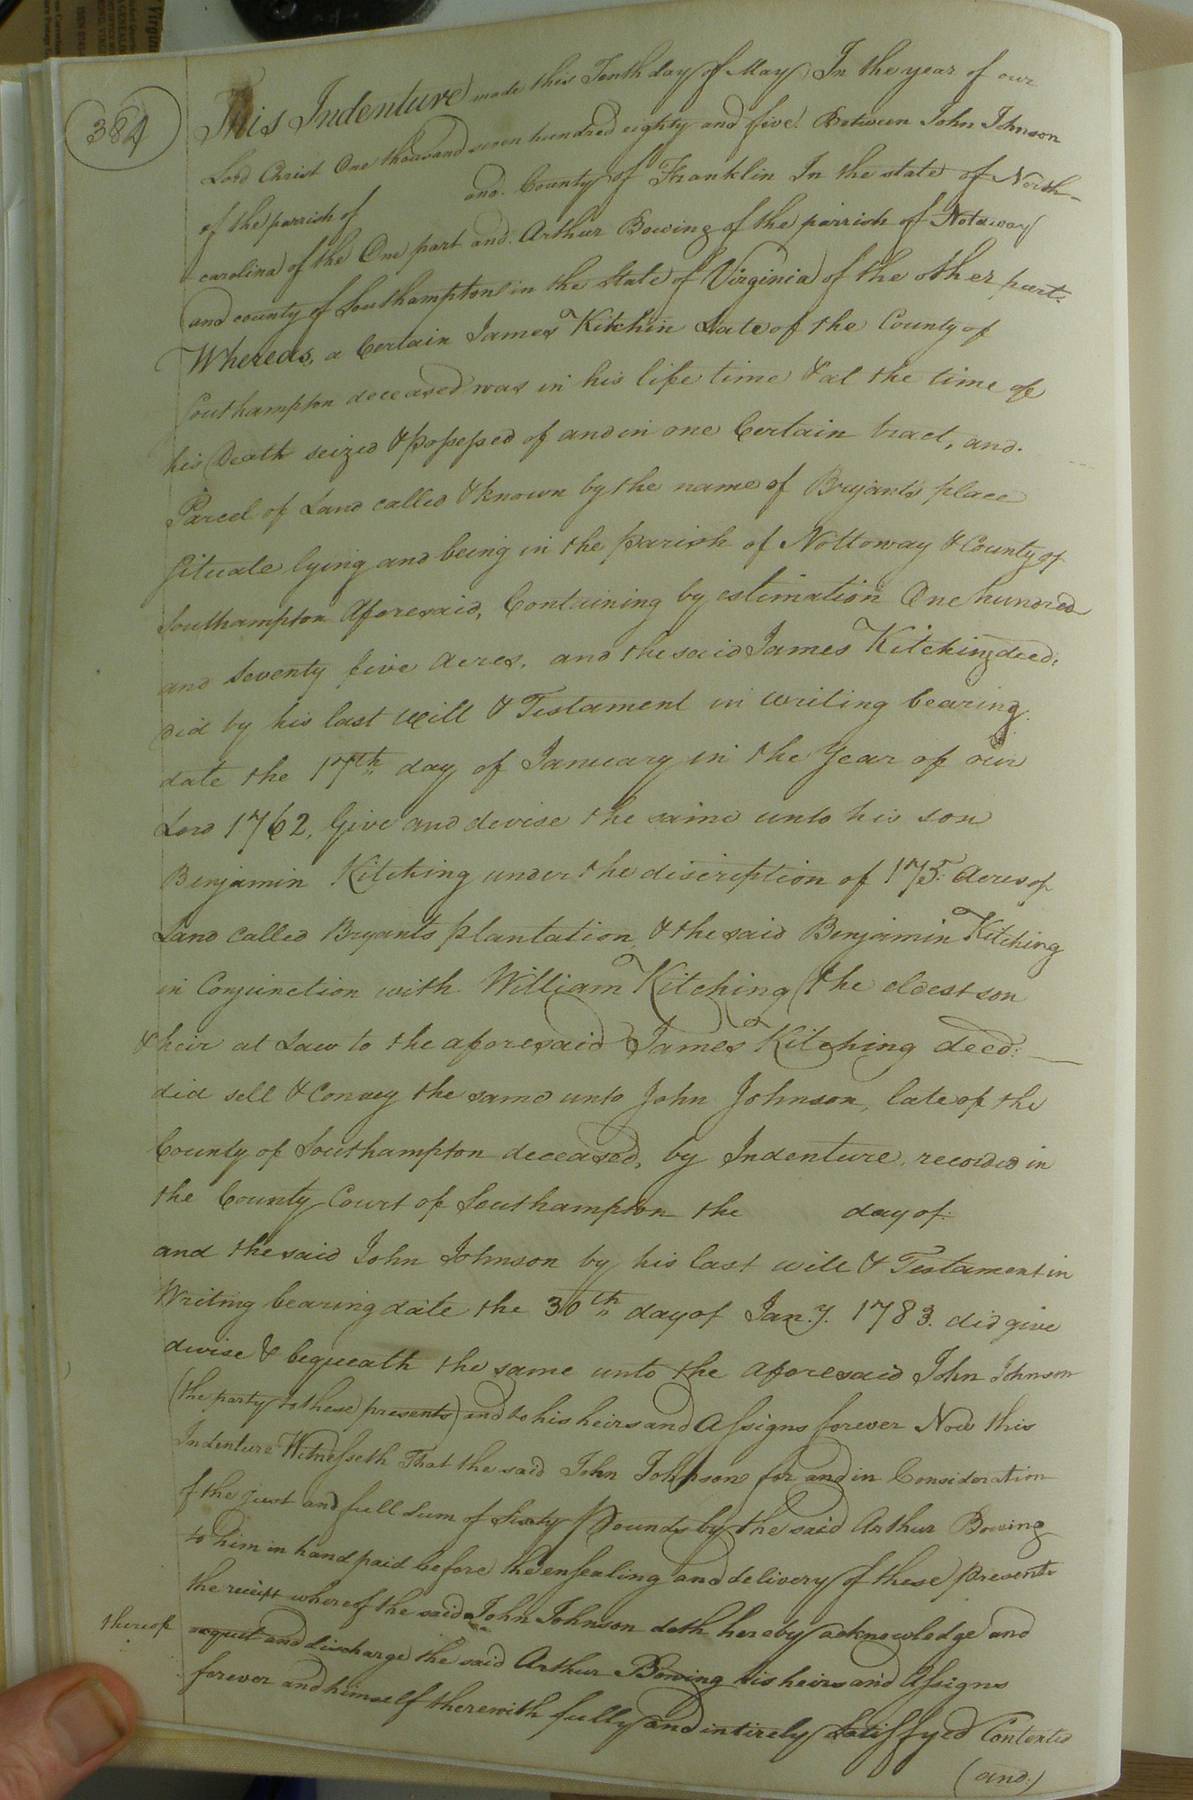 384
This Indenture made this Tenth day of May In the year of our
Lord Christ One thousand seven hundred eighty and five. Between John Johnson
of the parrish of and. County of Franklin In the state of North-
carolina of the One part and. Arthur Bowing of the parrish of Notaway
and county of Southampton in the State of Virginia of the other part.
Whereas, a Certain James Kitchin Late of the County of
Southampton deceased was in his life time & at the time of
his Death seized & possessed of and in one Certain tract, and.
Parcel of Land called & known by the name of Bryants place
Situate lying and being in the Parish of Nottoway & County of
Southampton Aforesaid, Containing by estimation One hundred
and Seventy five Acres, and the said James Kitching decd.
did by his last Will & Testament in writing bearing
date the 17th day of January in the Year of our
Lord 1762, Give and devise the same unto his son
Benjamin Kitching under the discription of 175 Acres of
Land Called Bryants plantation, & the said Benjamin Kitching
in Conjunction with William Kitching (the eldest son
& heir at Law to the aforesaid James Kitching decd:
did sell & convey the same unto John Johnson, late of the
County of Southampton deceased, by Indenture, recorded in
the County Court of Southampton the day of.
and the said John Johnson by his last will & Testament in
Writing bearing date the 30th day of Jan.y. 1783. did give
devise & bequeath the same unto the aforesaid John Johnson
(the party to these presents) and to his heirs and Assigns forever Now this
Indenture Witnesseth That the said John Johnson for and in Consideration
of the just and full Sum of Sixty Pounds by the said Arthur Bowing
to him in hand paid before the ensealing and delivery of these presents
the reciept whereof the said John Johnson doth hereby acknowledge and
thereof acquit and discharge the said Arthur Bowing his heirs and Assigns
forever and himself therewith fully and intirely Satisfyed Contented
(and.)